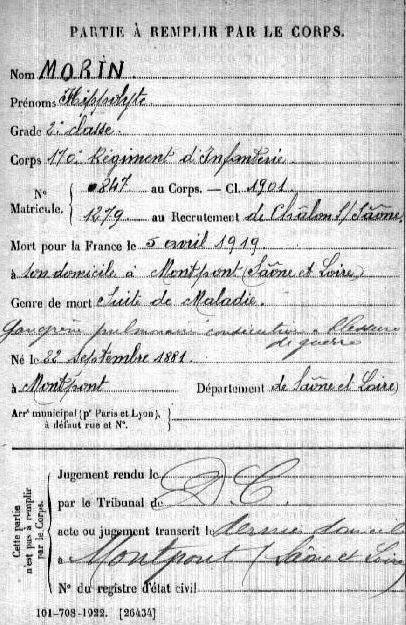 PARTIE À REMPLIR PAR LE CORPS.
Nom MORIN
Prénoms Hippolyte
Grade 2e classe.
Corps 170e Régiment d'Infanterie
N° Matricule. { 847 au Corps. — Cl. 1901
1279 au Recrutement de Châlon S/ Saône
Mort pour la France le 5 avril 1919
à son domicile à Montpont (Saône et Loire)
Genre de mort Suite de Maladie.
Gangrène pulmonaire consécutive à blessure
de guerre
Né le 22 septembre 1881
à Montpont Département de Saône et Loire)
Arrt municipal (pr Paris et Lyon), à défaut rue et N°. }
Cette partie n'est pas à remplir par le Corps.
Jugement rendu le
par le Tribunal de D C
acte ou jugement transcrit le dernier domicile
à Montpont (Saône et Loire
N° du registre d'état civil
101-708-1922. [26434]